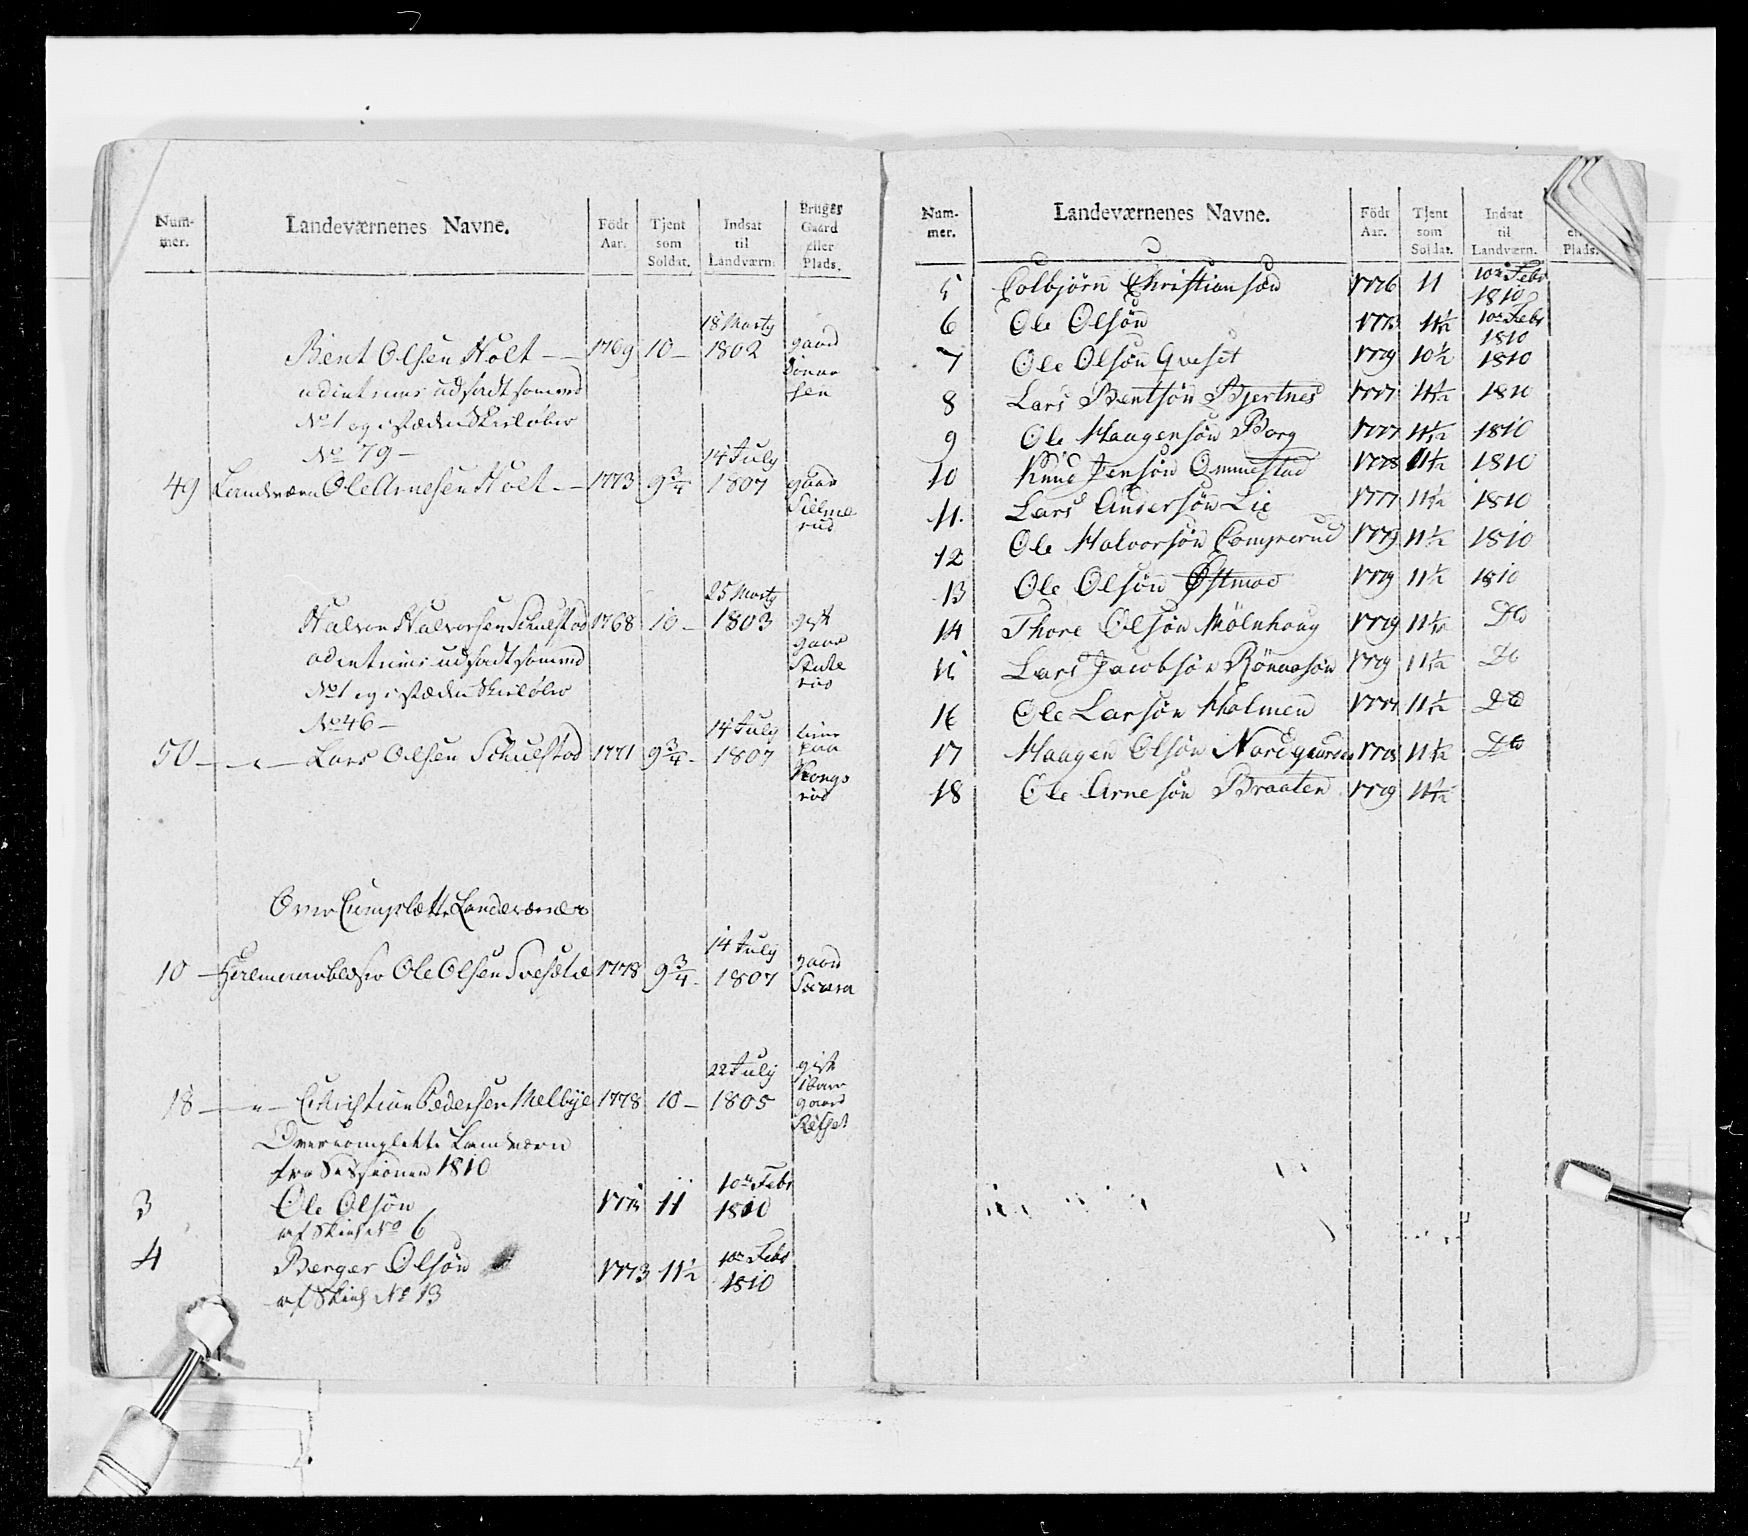 Num-
mer.
Landeværnenes Navne.
Födt
Aar.
Tjent
som
Soldat.
Indsat
til
Landværn.
Bruger
Gaard
eller
Plads.
18 Marty
Bent Olsen Holt — 1769 10 — 1802 gaard
ad intrims udsadt som
No 1 og i stæden Skieløber
No 79 —
14 July
49 Landværn Ole Arnesen Holt — 1773 9 3/4 1807 gaar
25 Marty
Halvor Halvorsen Schulstad 1768 10 — 1803 gift
gaar
ad intrims udsadt som
No 1 og i stæden Skieløber
No 46 —
14 July
50 — " — Lars Olsen Schulstad 1771 9 3/4 1807
Kongs
rud
Over Cumplætte Landeværner
14 July
10 — Ole Olsen 1778 9 3/4 1807 gaard
22 July gift
18 — " — Christian Pedersen Melbye 1778 10 — 1805 gaard
Overcomplette Landværn
fra Sessionen 1810
10de Febr
3 Ole Olsön 11 1810
af Skieh No 6
4 Berger Olsön 1773 11 1/2 10de Febr
1810
af Skieh No 13
Num-
mer.
Landeværnenes Navne.
Födt
Aar.
Tjent
som
Soldat.
Indsat
til
Landværn.
Plads.
5 Colbjörn Christiansön 1776 11 10de Febr
1810
6 Ole Olsön 1773 11 1/2 10de Febr
1810
7 Ole Olsön Qveset 1779 10 1/2 1810
8 Lars Bentsön Bjertnes 1777 11 1/2 1810
9 Ole Haagensön Borg 1777 11 1/2 1810
10 Knud Jensön Ommestad 1778 11 1/2 1810
11. Lars Andersön Lie 1777 11 1/2 1810
12 Ole Halvorsön Comperud 1779 11 1/2 1810
13 Ole Olsön Östmoe 1779 11 1/2 1810
14 Thore Olsön Mölnhoug 1779 11 1/2 Do
15 Lars Jacobsön Rönnesön 1779 11 1/2 Do
16 Ole Larsön Holmen 1777 11 1/2 Do
17 Haagen Olsön Nordgaarden 1778 11 1/2 Do
18 Ole Arnesön Braaten 1779 11 1/2